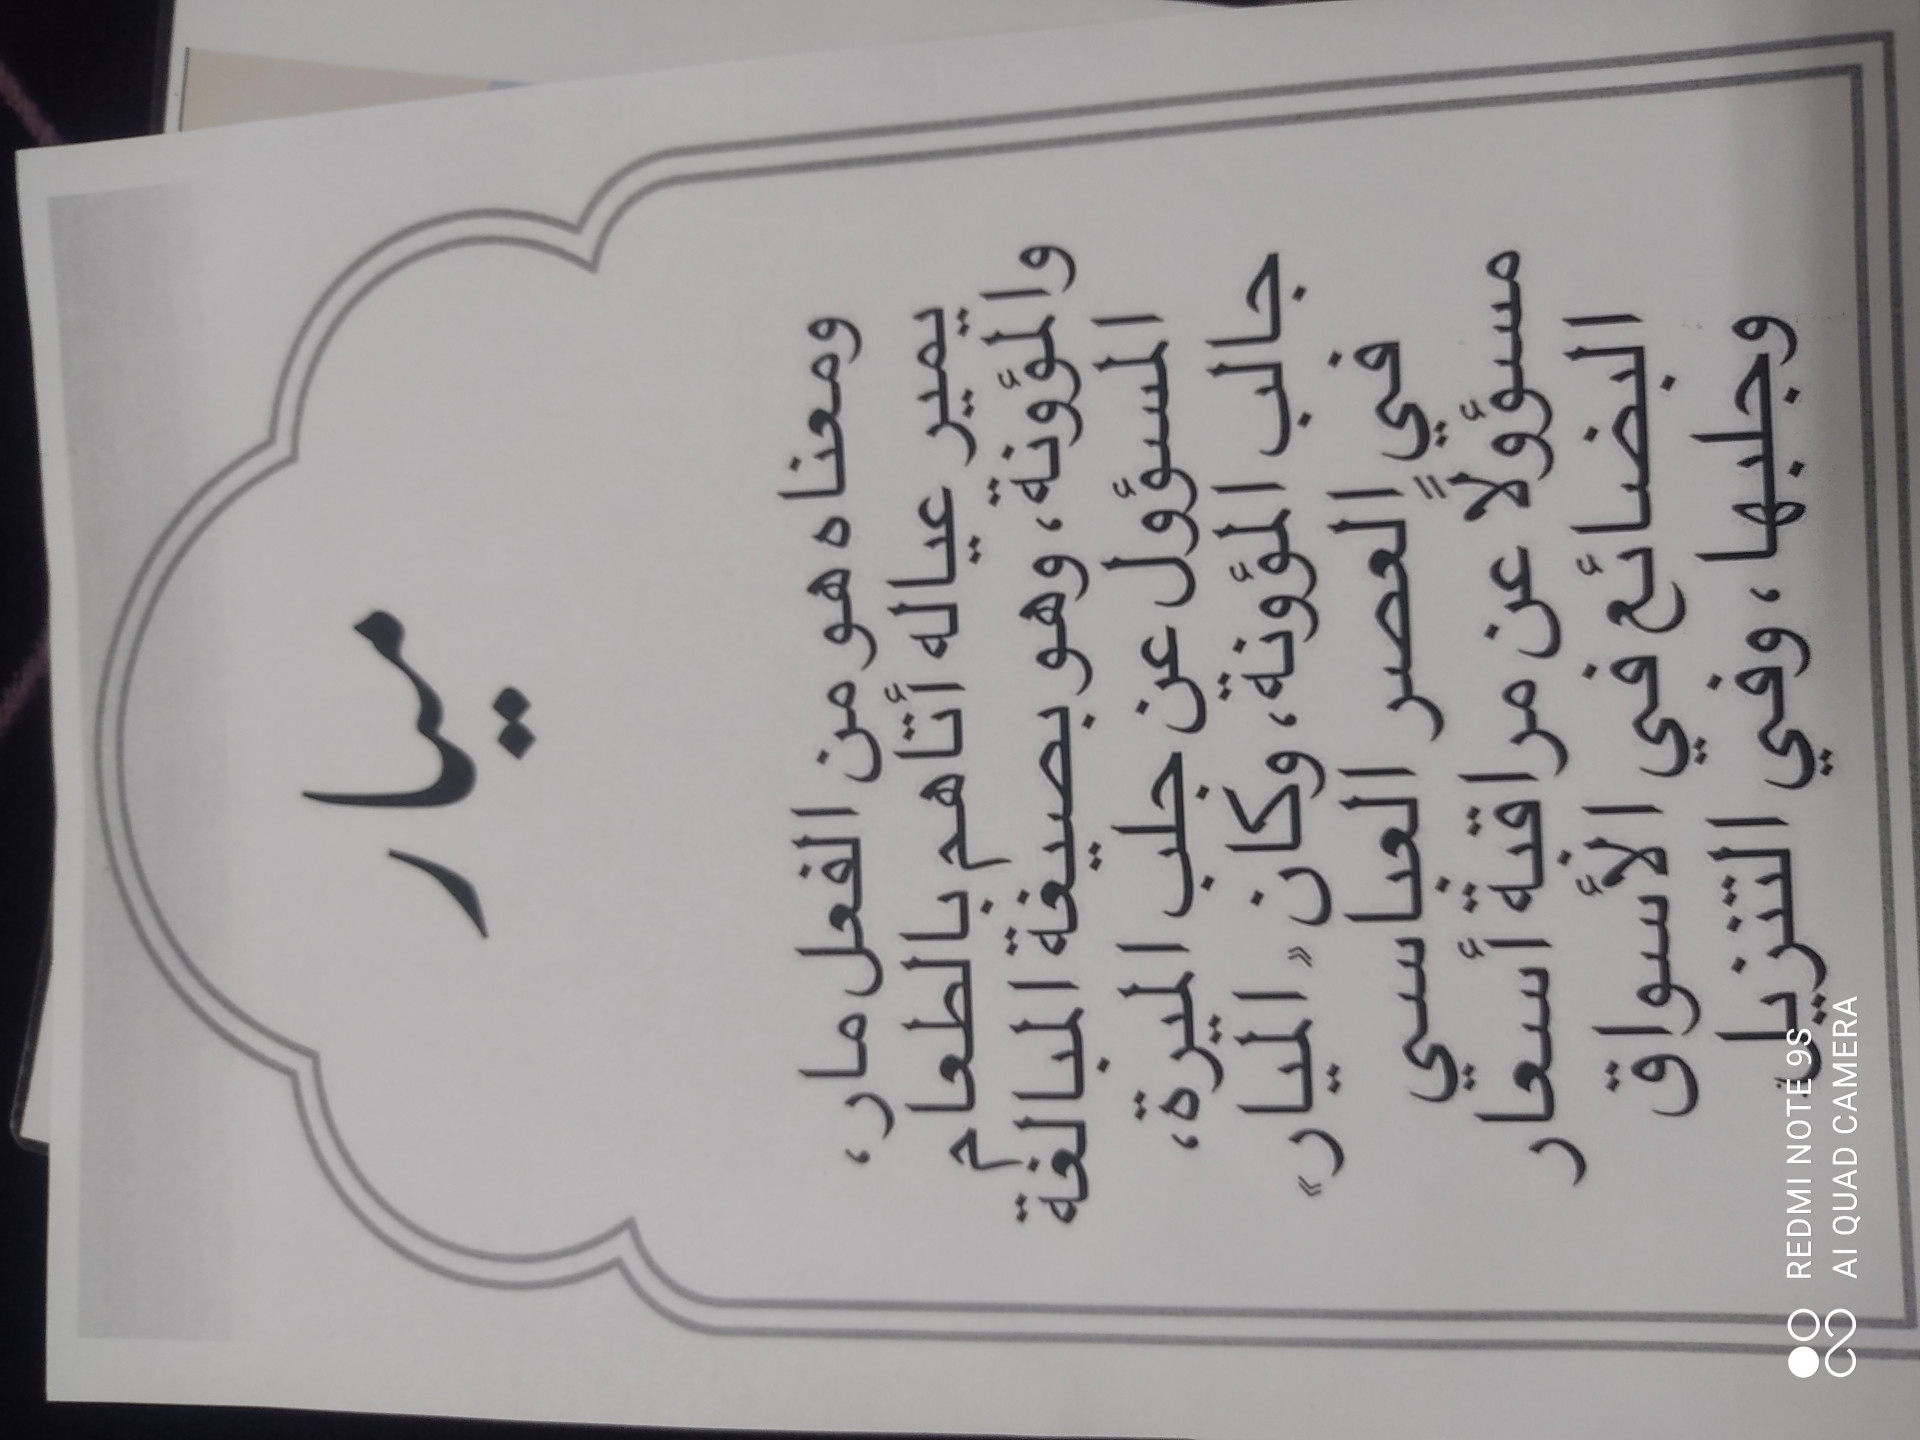 ميار
ومعناه هو من الفعل مار،
يمير عياله أتاهم بالطعام
والمؤونة، وهو بصيغة المبالغة
المسؤول عن جلب الميرة،
جالب المؤونة، وكان «الميار»
في العصر العباسي
مسؤولاً عن مراقبة أسعار
البضائع في الأسواق
وجلبها، وفي التنزيل
REDMI NOTE 9S
AI QUAD CAMERA